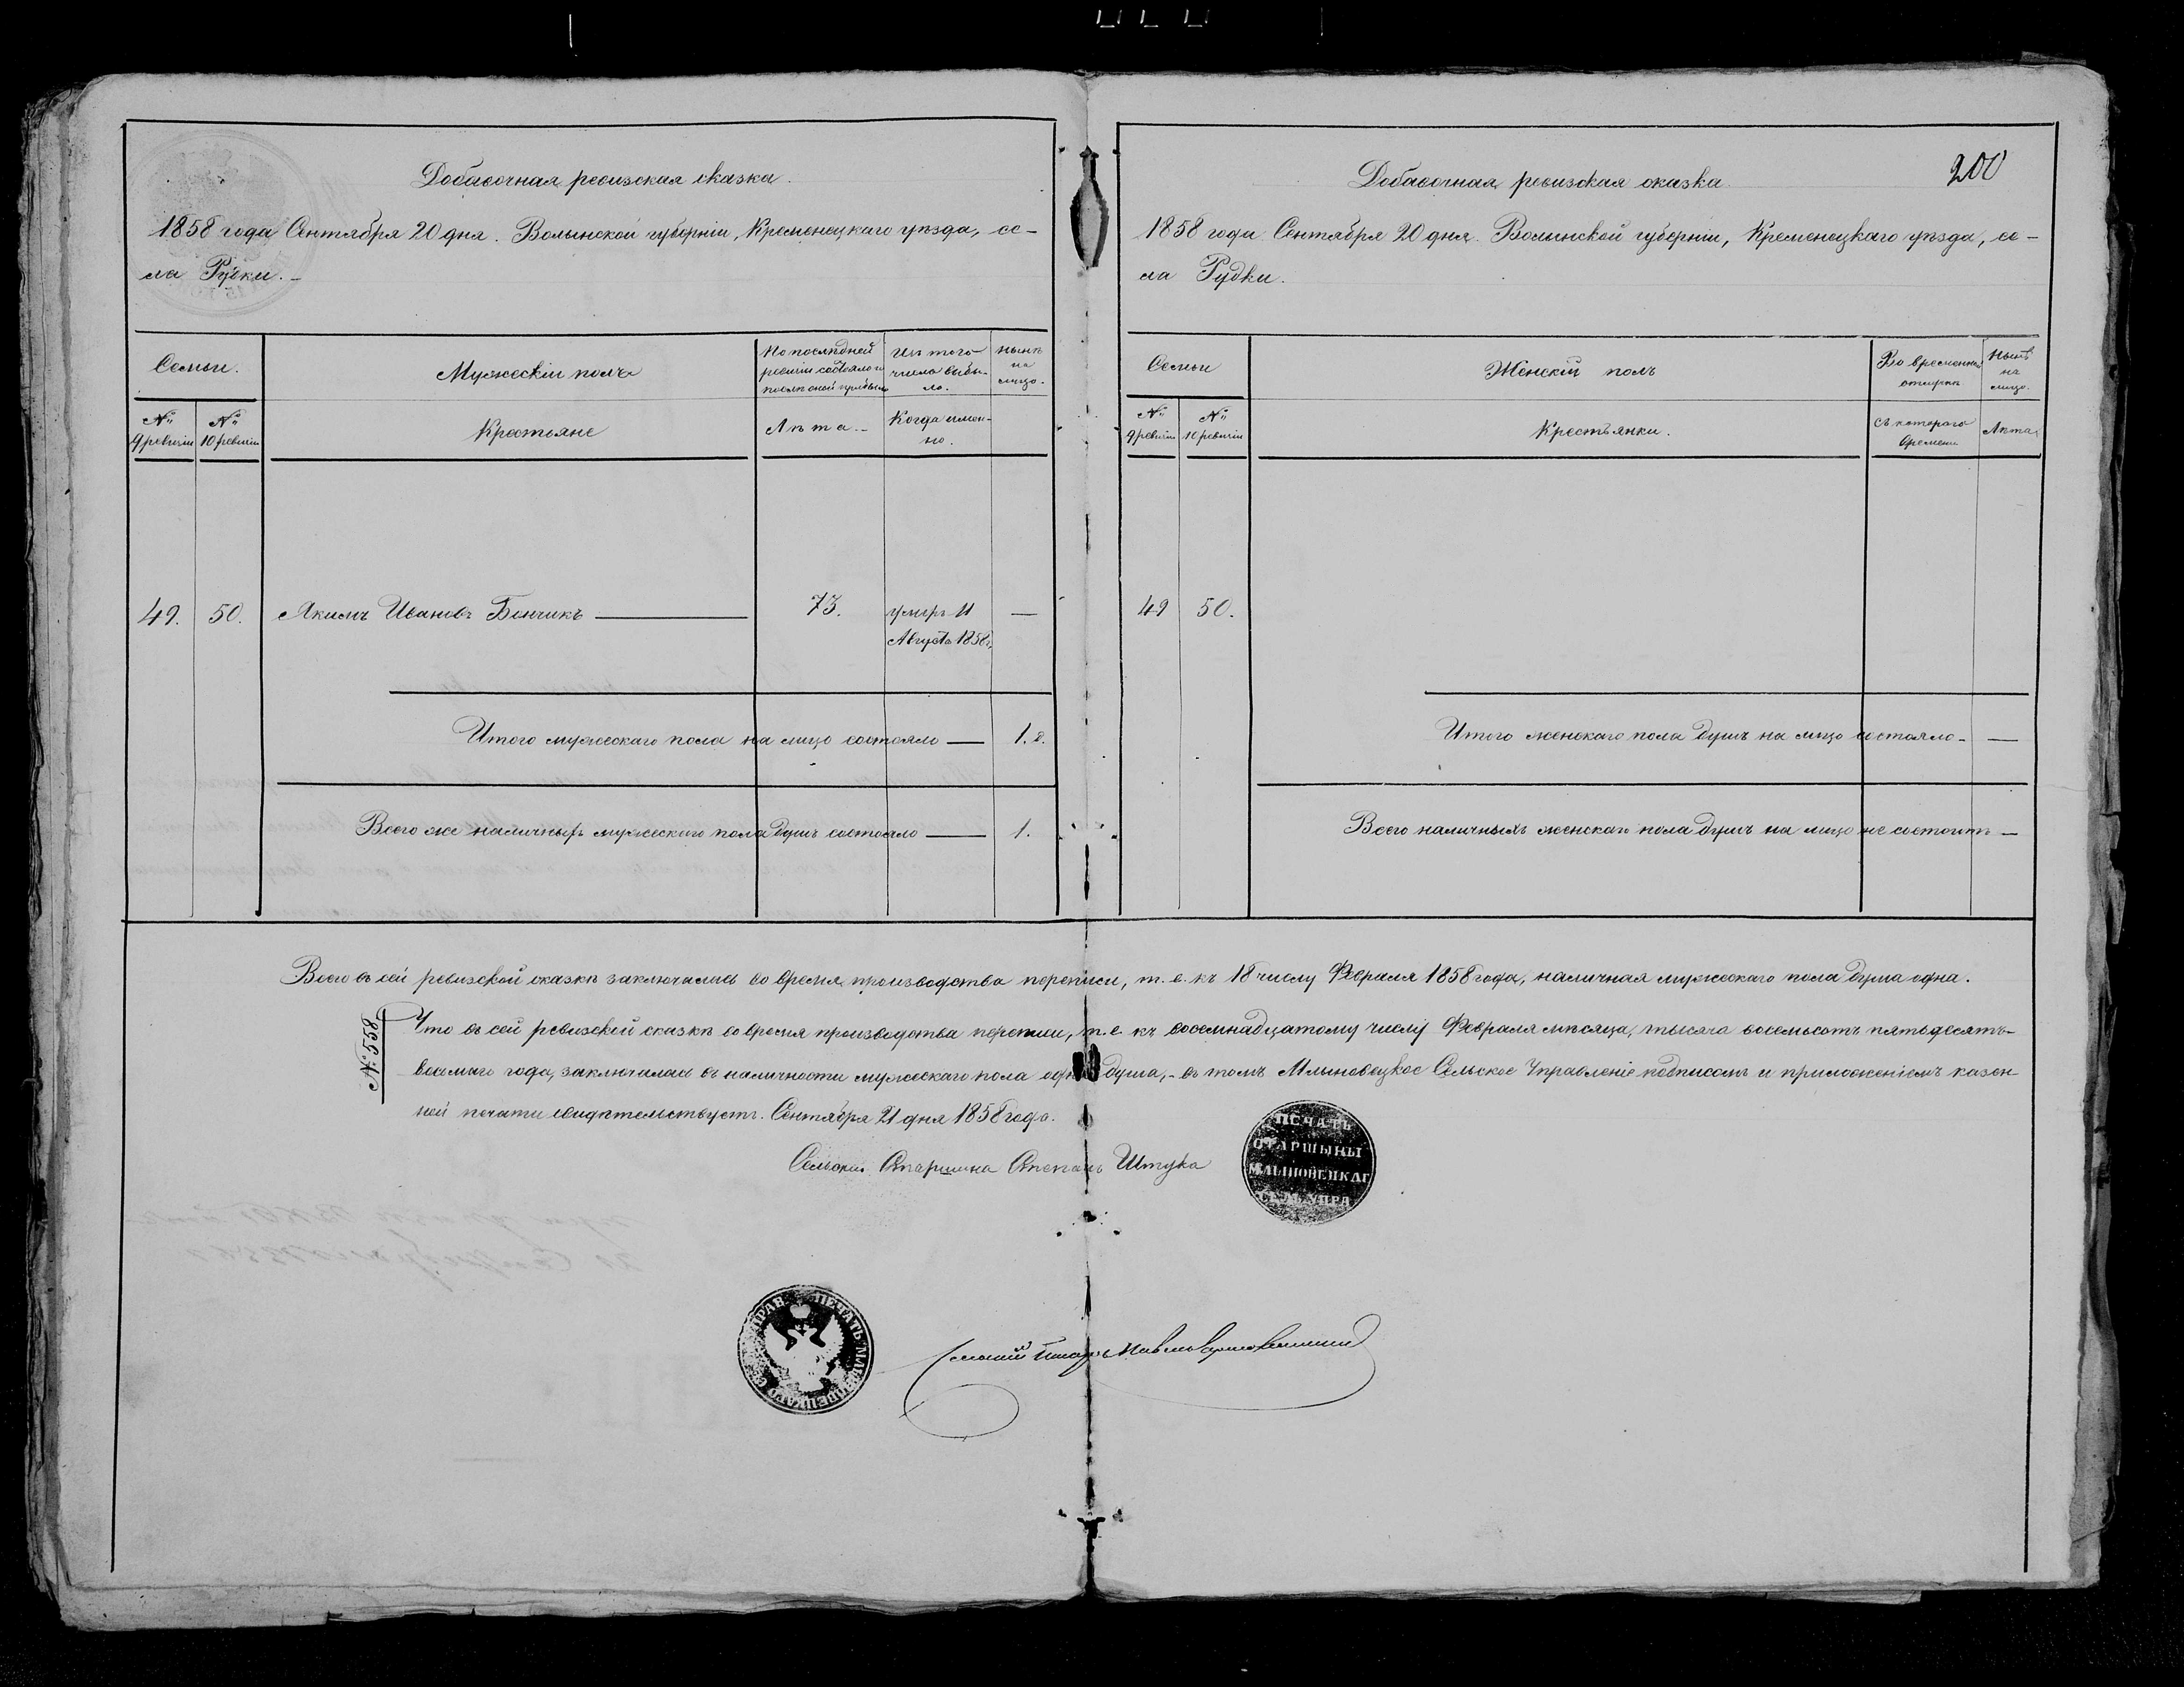 Добавочная ревизская сказка.
1858 года Сентября 20 дня. Волынской губерніи, Кременецкаго уѣзда, се-
ла Рудки.
Семьи.
Мужескій полъ
По послѣдней ревизіи состояло и послѣ оной прибыло
Изъ того числа выбы-
ло.
Нынѣ на лицо.
№ 9 ревизіи
№ 10 ревизіи
Крестьяне
Лѣта.
Когда имен-
но.
49. 50. Якимъ Ивановъ Бончикъ — 73. умеръ 11 —
Августа 1858 г.
Итого мужескаго пола на лицо состояло — 1.
Всего же наличныхъ мужескаго пола душъ состояло — 1.
200
Добавочная ревизская сказка
1858 года Сентября 20 дня. Волынской губерніи, Кременецкаго уѣзда, се-
ла Рудки.
Семьи
Женскій полъ
Во временной отлучкѣ
Нынѣ на лицо.
№ 9 ревизіи
№ 10 ревизіи
Крестьянки.
Съ котораго времени
Лѣта
49 50.
Итого женскаго пола душъ на лицо состояло- —
Всего наличныхъ женскаго пола душъ на лицо не состоитъ —
Всего въ сей ревизской сказкѣ заключалось во время производства переписи, т. е. къ 18 числу Февраля 1858 года, наличная мужескаго пола душа одна.
№ 558
Что въ сей ревизской сказкѣ во время производства переписи, т. е. къ восемнадцатому числу Февраля мѣсяца, тысяча восемьсотъ пятьдесятъ-
восьмаго года, заключалась въ наличности мужескаго пола одна душа,- въ томъ Млыновецкое Сельское Управленіе подписомъ и приложеніемъ казен-
ной печати свидѣтельствуетъ. Сентября 21 дня 1858 года.
Сельскій Старшина Степанъ Штука
ПЕЧАТЬ
СТАРШЫНЫ
МЛЫНОВЕЦКАГ
СЕЛЬ УПРА
ПЕЧАТЬ МЛЫНОВЕЦКАГО СЕЛ УПРАВ
Сельскій Писарь